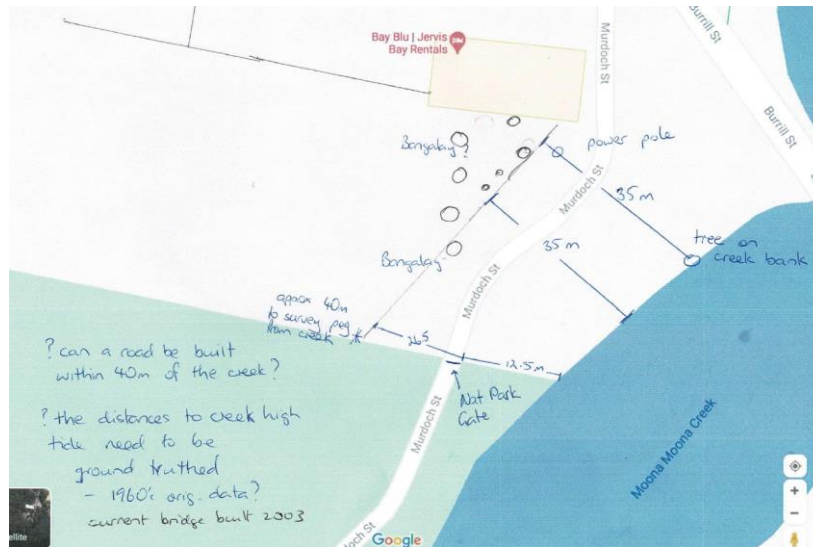 Bay Blu | Jervis
Bay Rentals
Murdoch St
Burrill St
Burrill St
Bangalay?
power pole
Murdoch St
35m
tree on
creek bank
35m
Bangalay
Murdoch St
apox 40m
to survey peg
from creek
26.5
12.5m
Nat Park
Gate
? can a road be built
within 40m of the creek?
? the distances to creek high
tide need to be
ground truthed
- 1960's orig. data?
current bridge built 2003
Murdoch St
Moona Moona Creek
ellite
och St
Google